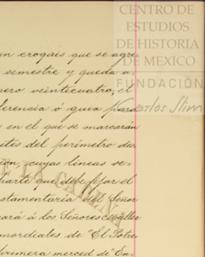 CENTRO DE
ESTUDIOS
DE HISTORIA
DE MEXICO
FUNDACIÓN
Carlos Slim
un croquis que se agre
semestre y queda a
ero veinticuatro, el
ferencia ó guia para
en el que se marcarán
ites del perímetro de
ion, cuyas lineas se
parte que debe por el
stamentaria del Señor
ará á los Señores
mordiales de El Potre
primera merced de